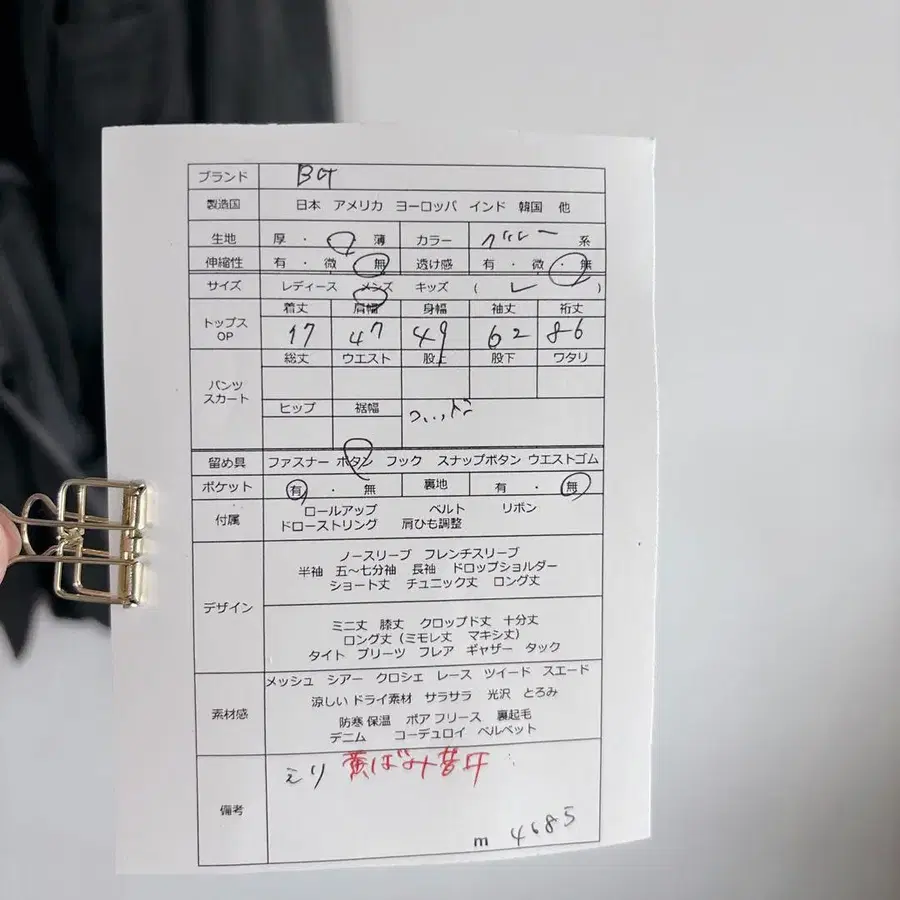 ブランド
製造国 日本 アメリカ ヨーロッパ インド 韓国 他
生地 厚 ・ 薄 カラー グレー 系
伸縮性 有 ・ 微 ・ 無 透け感 有 ・ 微 ・ 無
サイズ レディース メンズ キッズ ( L )
着丈 肩幅 身幅 袖丈 裄丈
トップス OP 47 49 62 86
総丈 ウエスト 股上 股下 ワタリ
パンツ スカート
ヒップ 裾幅
留め具 ファスナー ボタン フック スナップボタン ウエストゴム
ポケット 有 ・ 無 裏地 有 ・ 無
付属 ロールアップ ベルト リボン
ドローストリング 肩ひも調整
ノースリーブ フレンチスリーブ
半袖 五〜七分袖 長袖 ドロップショルダー
ショート丈 チュニック丈 ロング丈
デザイン
ミニ丈 膝丈 クロップド丈 十分丈
ロング丈(ミモレ丈 マキシ丈)
タイト プリーツ フレア ギャザー タック
メッシュ シアー クロシェ レース ツイード スエード
涼しい ドライ素材 サラサラ 光沢 とろみ
素材感
防寒 保温 ボア フリース 裏起毛
デニム コーデュロイ ベルベット
えり 黄ばみ
備考
m 4685